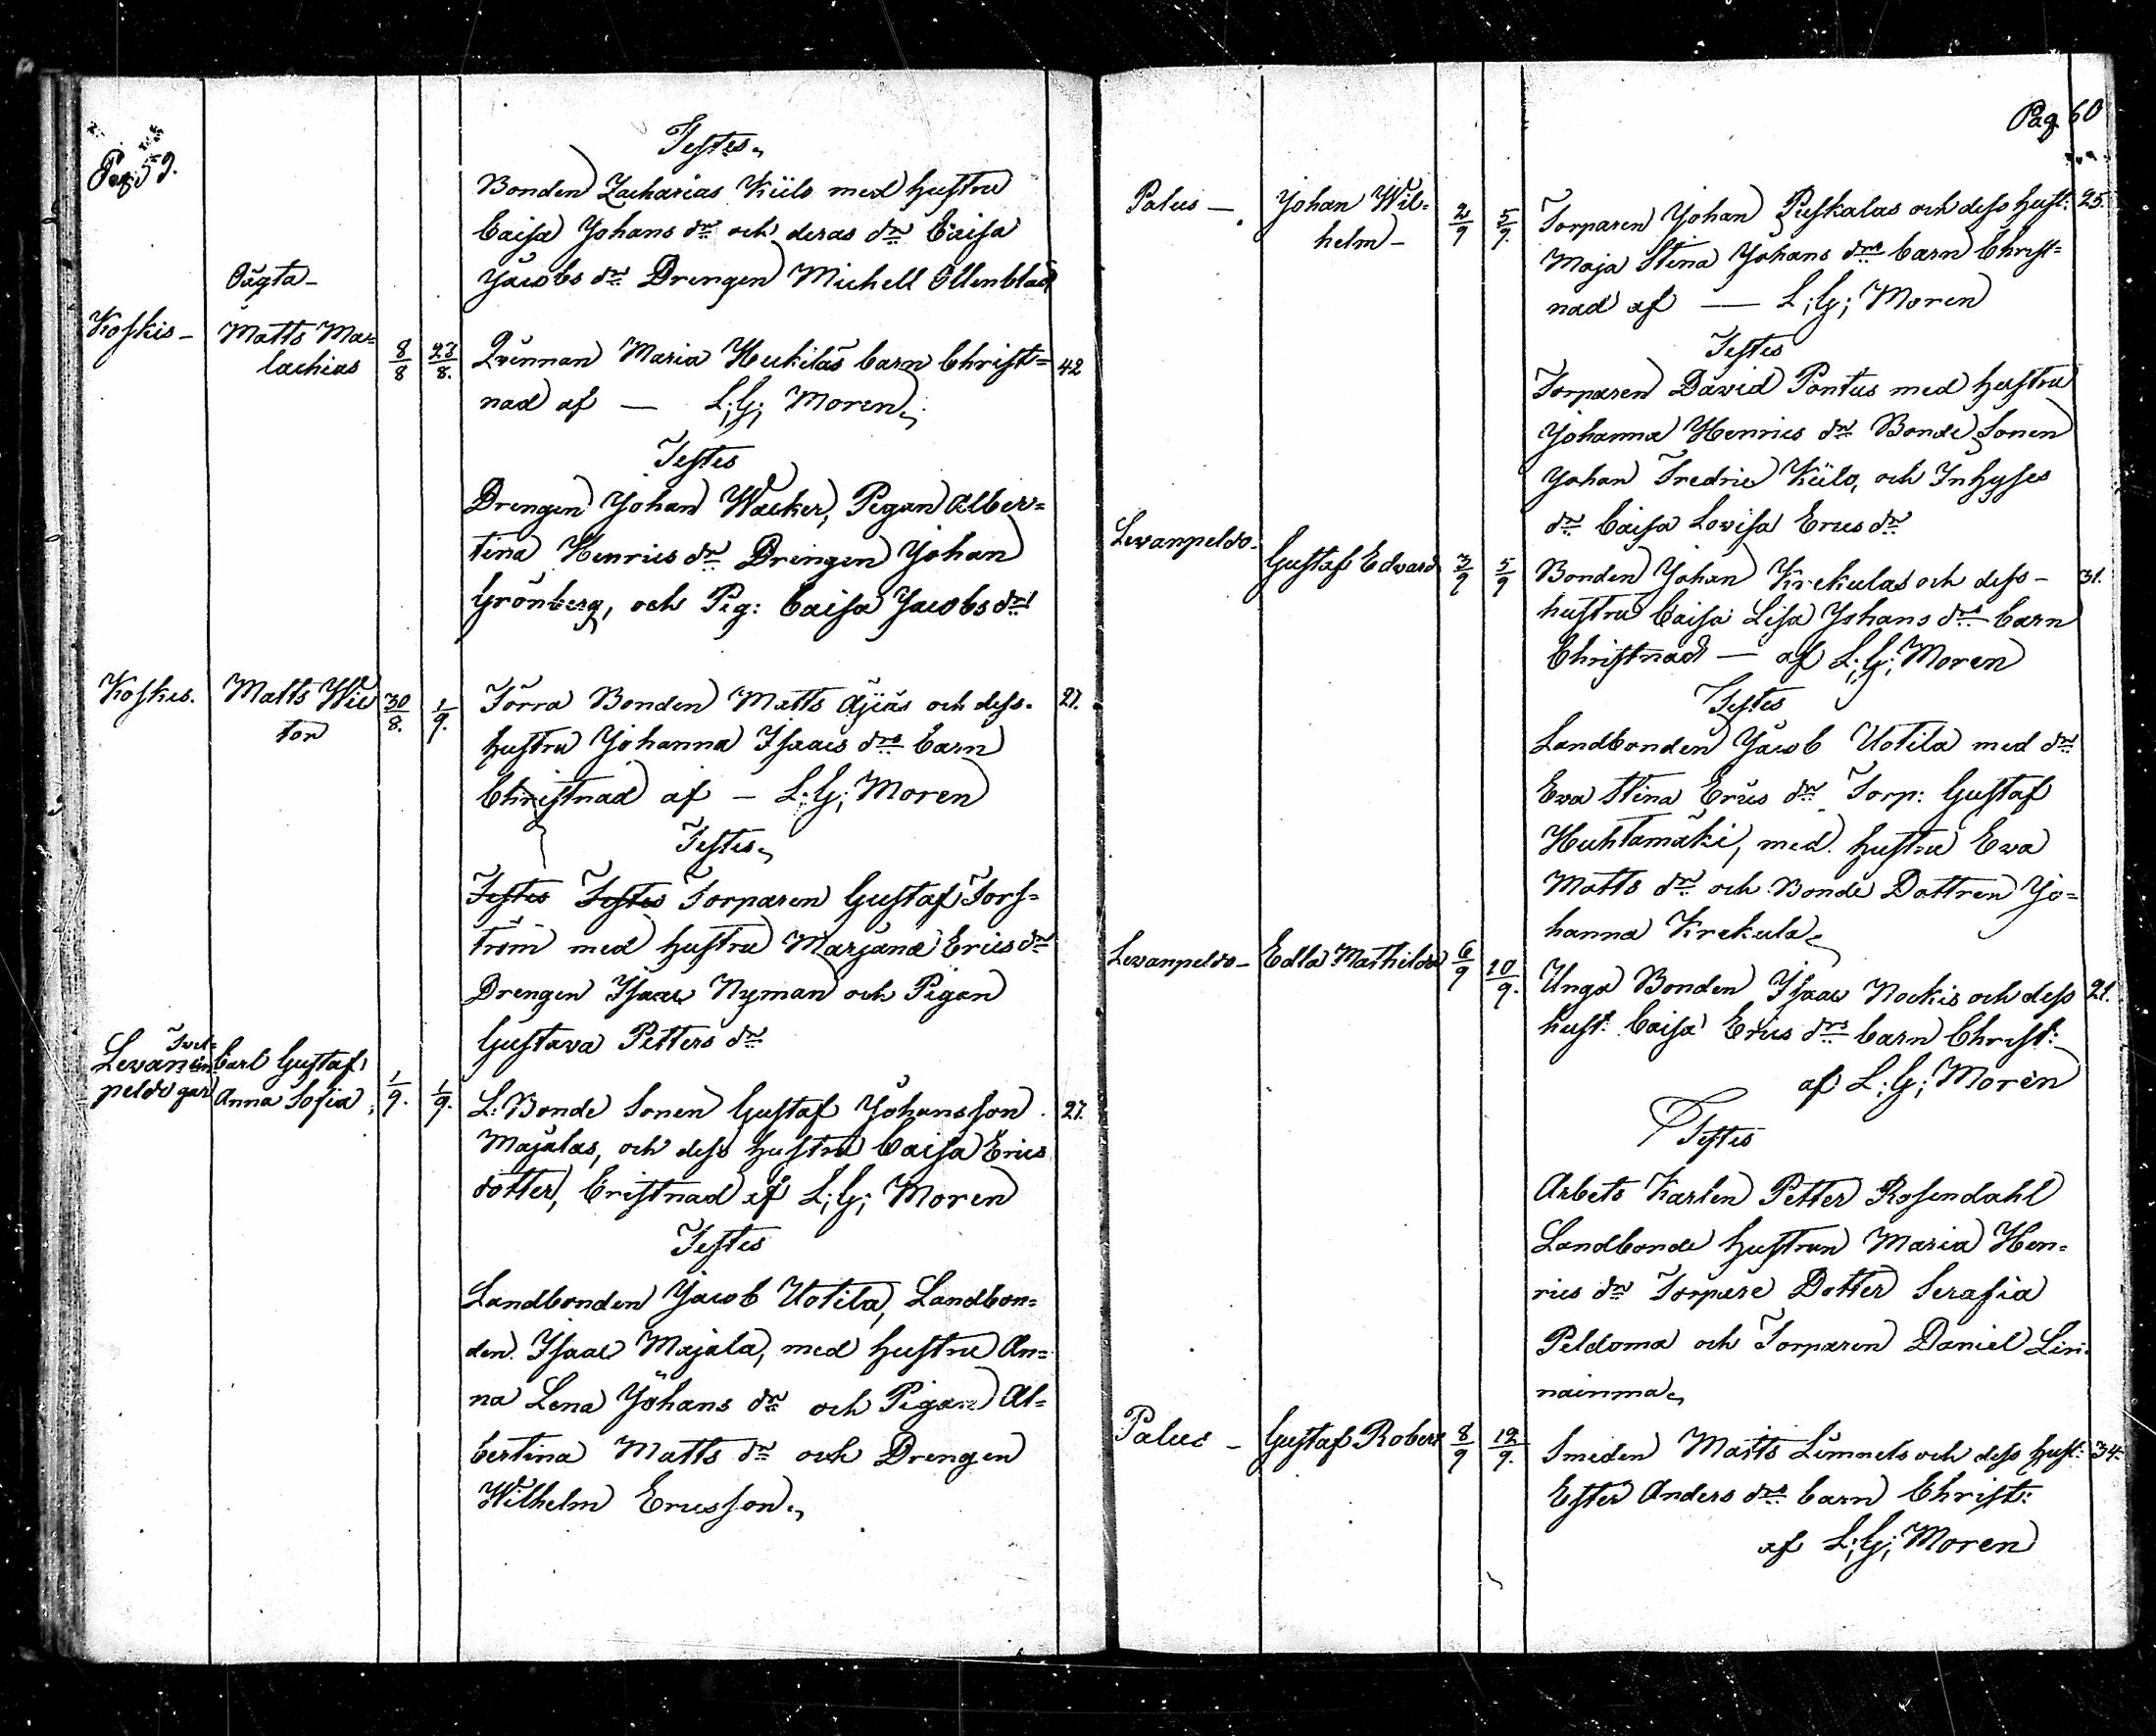 Pag. 59.
Testes.
Bonden Zacharias Kiilo med hustru
Caisa Johans dr och deras dr Caisa
Jacobs dr Drengen Michell Ollenblad
Oägta -
Koskis - Matts Ma-
lachias 8/8 23/8. Qvinnan Maria Heikiläs barn Christ= 42
nad af — L; G; Moren.
Testes
Drengen Johan Wacker, Pigan Alber=
tina Henrics dr Drengen Johan
Grönberg, och Pig: Caisa Jacobs dr
Koskis. Matts Wic
tor 30/8. 1/9. Torra Bonden Matts Äijäs och dess. 27.
hustru Johanna Isaacs drs barn
Christnad af - L; G; Moren
Testes.
Testes Testes Torparen Gustaf Fors=
tröm med hustru Marjana Erics dr
Drengen Isaac Nyman och Pigan
Gustava Petters dr
Levan
peldo Carl Gustaf
Anna Sofia, 1/9. 1/9. L: Bonde Sonen Gustaf Johansson. 27.
Majalas, och dess hustru Caisa Erics
dotter, Cristnad af L; G; Moren
Testes
Landbonden Jacob Uotila, Landbon=
den. Isaac Majala, med hustru An=
na Lena Johans dr och Pigan Al=
bertina Matts dr och Drengen
Wilhelm Ericsson.
Pag. 60
Palus — Johan Wil=
helm - 2/9 5/9. Torparen Johan Puskalas och dess hust: 25.
Maja Stina Johans drs barn Christ=
nad af — L; G; Moren
Testes
Torparen David Pontus med hustru
Johanna Henrics dr Bonde Sonen
Johan Fredric Kiilo, och Inhyses
dr Caisa Lovisa Erics dr
Levanpeldo - Gustaf Edvard 3/9 5/9 Bonden Johan Krekulas och dess - 31.
hustru Caisa Lisa Johans drs barn
Christnad — af L; G; Moren
Testes
Landbonden Jacob Uotila med dr
Eva Stina Erics dr Torp: Gustaf
Huhtamäki, med hustru Eva
Matts dr och Bonde Dottren Jo=
hanna Krekula.
Levanpeldo - Edla Mathilda 6/9 10/9. Unga Bonden Isaac Nockis och dess 21.
hust: Caisa Erics drs barn Christ:
af L; G; Moren
Testes
Arbets Karlen Petter Rosendahl
Landbonde hustrun Maria Hen=
rics dr Torpare Dotter Serafia
Peldoma och Torparen Daniel Lin=
nainma.
Palus - Gustaf Robert 8/9 12/9. Smeden Matts Limnels och dess hust: 34.
Ester Anders drs barn Christ:
af L; G; Moren